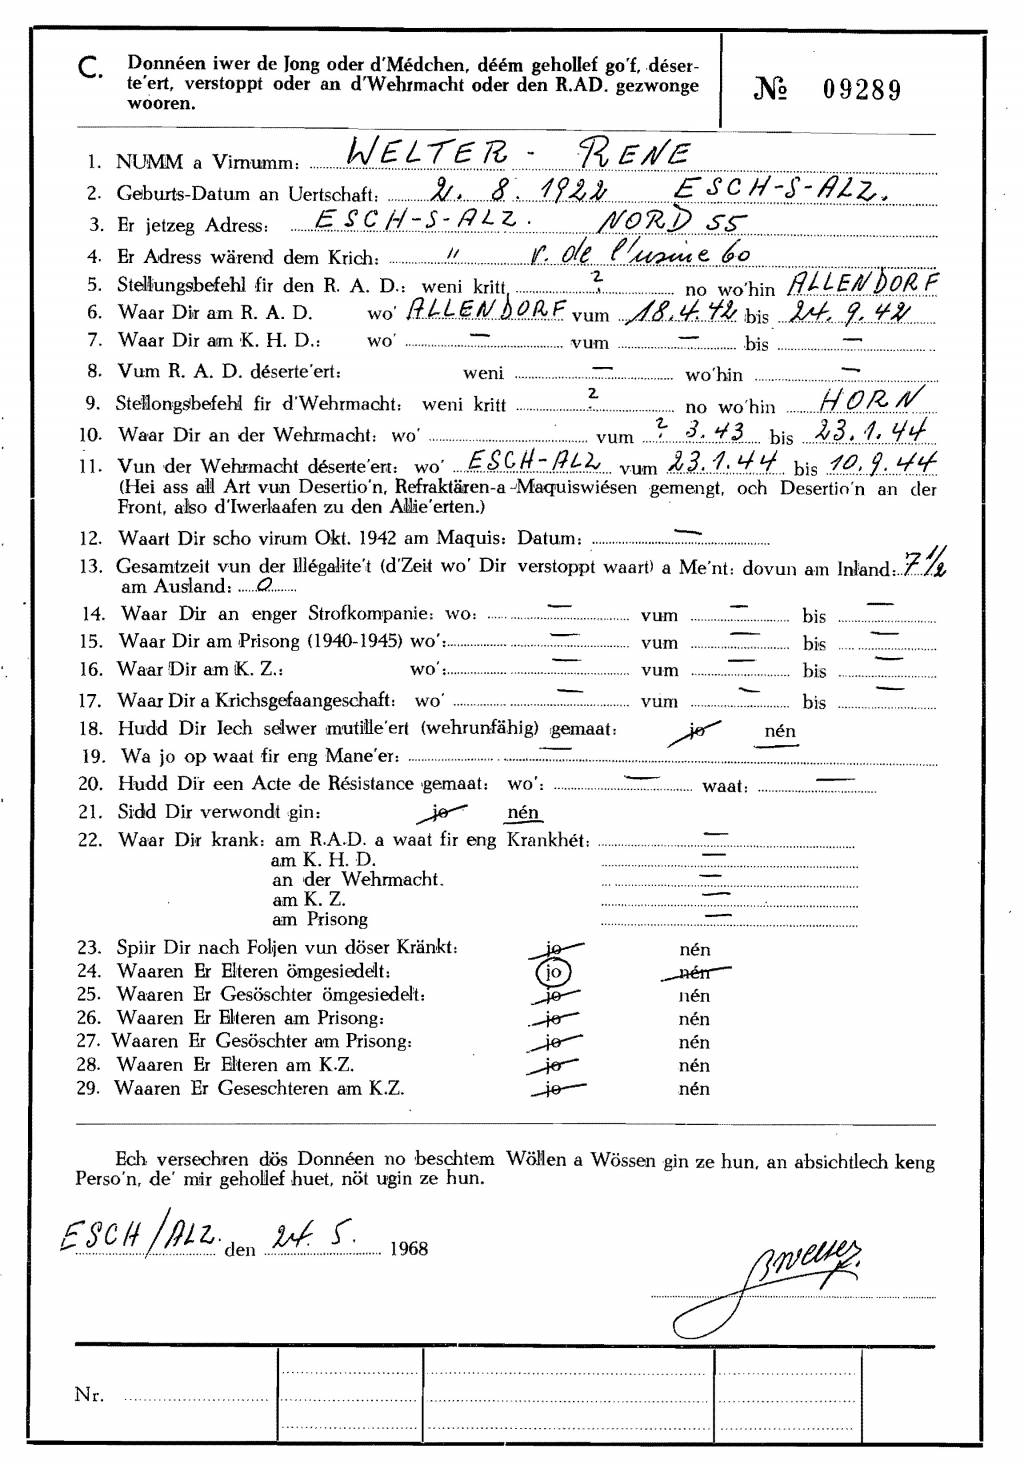 C. Donnéen iwer de Jong oder d'Médchen, déém gehollef go'f, déser-
te'ert, verstoppt oder an d'Wehrmacht oder den R.AD. gezwonge
wooren.
№ 09289
1. NUMM a Virnumm: WELTER - RENE
2. Geburts-Datum an Uertschaft: 2. 8. 1922 ESCH-S-ALZ.
3. Er jetzeg Adress: ESCH-S-ALZ. NORD 55
4. Er Adress wärend dem Krich: " r. de l'usine 60
5. Stellungsbefehl fir den R. A. D.: weni kritt ? no wo'hin ALLENDORF
6. Waar Dir am R. A. D. wo' ALLENDORF vum 18.4.42 bis 24.9.42
7. Waar Dir am K. H. D.: wo' — vum — bis —
8. Vum R. A. D. déserte'ert: weni — wo'hin —
9. Stellongsbefehl fir d'Wehrmacht: weni kritt ? no wo'hin HORN
10. Waar Dir an der Wehrmacht: wo' vum ? 3.43 bis 23.1.44
11. Vun der Wehrmacht déserte'ert: wo' ESCH-ALZ vum 23.1.44 bis 10.9.44
(Hei ass all Art vun Desertio'n, Refraktären-a-Maquiswiésen gemengt, och Desertio'n an der
Front, also d'Iwerlaafen zu den Allie'erten.)
12. Waart Dir scho virum Okt. 1942 am Maquis: Datum: —
13. Gesamtzeit vun der Illégalite't (d'Zeit wo' Dir verstoppt waart) a Me'nt: dovun am Inland: 7 1/2
am Ausland: 0
14. Waar Dir an enger Strofkompanie: wo: — vum — bis —
15. Waar Dir am Prisong (1940-1945) wo': — vum — bis —
16. Waar Dir am K. Z.: wo': — vum — bis —
17. Waar Dir a Krichsgefaangeschaft: wo' — vum — bis —
18. Hudd Dir Iech selwer mutille'ert (wehrunfähig) gemaat: jo nén
19. Wa jo op waat fir eng Mane'er: —
20. Hudd Dir een Acte de Résistance gemaat: wo': — waat: —
21. Sidd Dir verwondt gin: jo nén
22. Waar Dir krank: am R.A.D. a waat fir eng Krankhét: —
am K. H. D. —
an der Wehrmacht. —
am K. Z. —
am Prisong —
23. Spiir Dir nach Foljen vun döser Kränkt: jo nén
24. Waaren Er Elteren ömgesiedelt: jo nén
25. Waaren Er Gesöschter ömgesiedelt: jo nén
26. Waaren Er Elteren am Prisong: jo nén
27. Waaren Er Gesöschter am Prisong: jo nén
28. Waaren Er Elteren am K.Z. jo nén
29. Waaren Er Geseschteren am K.Z. jo nén
Ech versechren dös Donnéen no beschtem Wöllen a Wössen gin ze hun, an absichtlech keng
Perso'n, de' mir gehollef huet, nöt ugin ze hun.
ESCH/ALZ. den 24. 5. 1968
Nr.